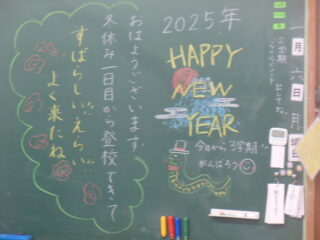 2025年
HAPPY
NEW
YEAR
今日から3学期
がんばろう
おはようございます。
冬休み一日目から登校できて
すばらしい!えらい!
よく来たね
一月六日月曜